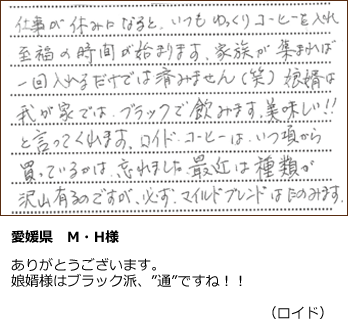 仕事が休みになると、いつもゆっくりコーヒーを入れ
至福の時間が始まります。家族が集まれば
一回入れるだけでは済みません(笑)娘婿は
我が家では、ブラックで飲みます。美味しい!!
と言ってくれます。ロイド・コーヒーは、いつ頃から
買っているかは、忘れました。最近は種類が
沢山有るのですが、必ず、マイルドブレンドはたのみます。
愛媛県　M・H様
ありがとうございます。
娘婿様はブラック派、”通”ですね！！
（ロイド）